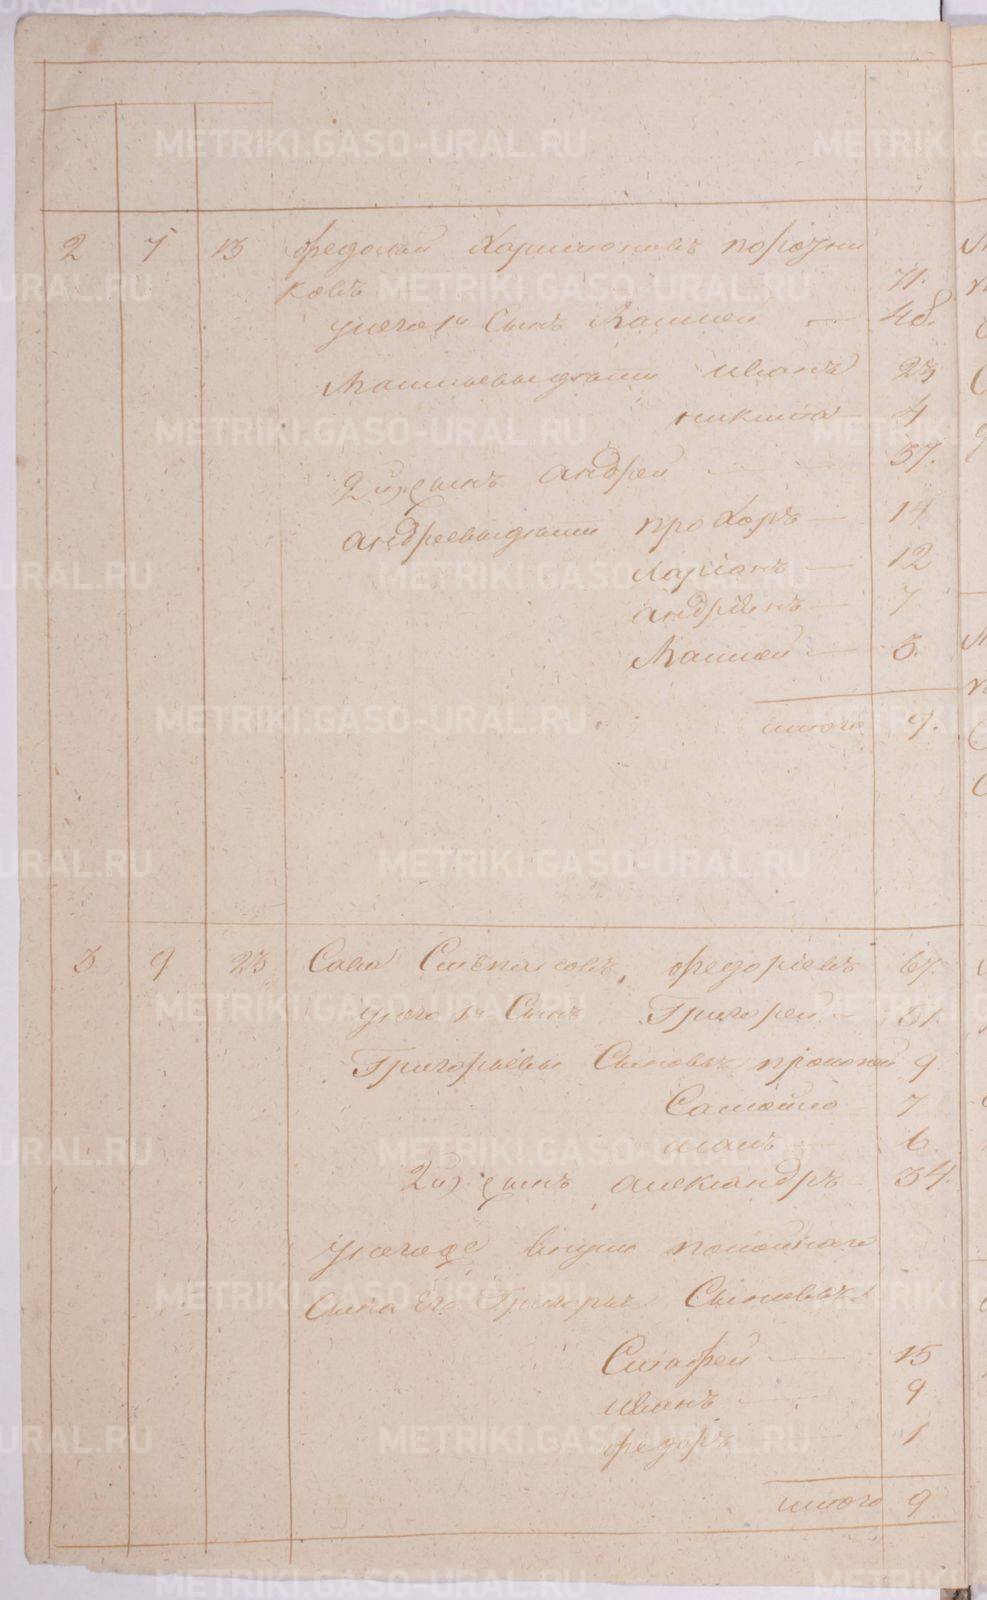 2 7 13 Федосей Харитоновъ порозни
ковъ 71.
у него 1й Сынъ Матвей — 48.
Матвеевы дети Иванъ 23
никита 4
2й сынъ андрей — 37.
андреевы дети прохоръ — 14
Ларіонъ — 12
андріянъ — 7
Матвей — 3.
итого 9.
3 9 23 Сава Степановъ федоріевъ 67.
у него 1й Сынъ Григорей — 37.
Григорьевы Сыновья прокопий 9
Самойло 7
6.
2й сынъ александръ 34.
у него же внуки покойнаго
Сына его Григорья Сыновья
Евстафей — 15
иванъ — 9
федоръ — 1
итого 9
METRIKI.GASO-URAL.RU